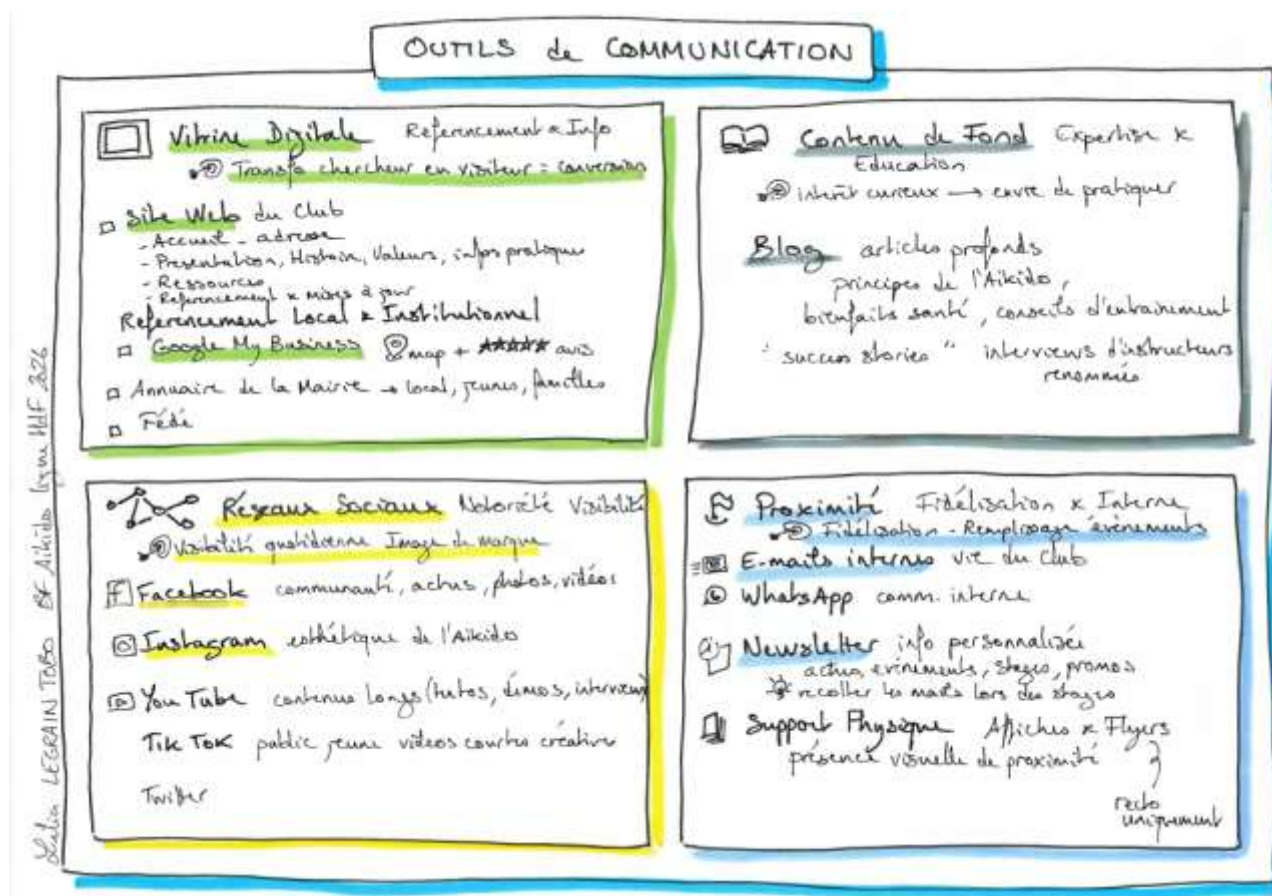 OUTILS de COMMUNICATION
Vitrine Digitale Referencement & Info
Transfo chercheur en visiteur = conversion
Site Web du Club
- Accueil - adresse
- Presentation, Histoire, Valeurs, infos pratiques
- Ressources
- Referencement & Mises à jour
Referencement Local & Institutionnel
Google My Business map + avis
Annuaire de la Mairie → local, jeunes, familles
Fédé
Contenu de Fond Expertise &
Education
intérêt curieux → envie de pratiquer
Blog articles profonds
principes de l'Aïkido,
bienfaits santé, conseils d'entrainement
"success stories" interviews d'instructeurs
renommés
Réseaux Sociaux Notoriété Visibilité
Visibilité quotidienne Image de marque
Facebook communauté, actus, photos, vidéos
Instagram esthétique de l'Aïkido
YouTube contenus longs (tutos, démos, interviews)
Tik Tok public jeune videos courtes créatives
Twitter
Proximité Fidélisation & Interne
Fidélisation - Remplissage évènements
E-mails internes vie du Club
WhatsApp comm. interne
Newsletter info personnalisée
actus, evénements, stages, promos
recolter les mails lors des stages
Support Physique Affiches & Flyers
présence visuelle de proximité
recto
uniquement
LEGRAIN TOBO BF Aïkido ligue HdF 2026